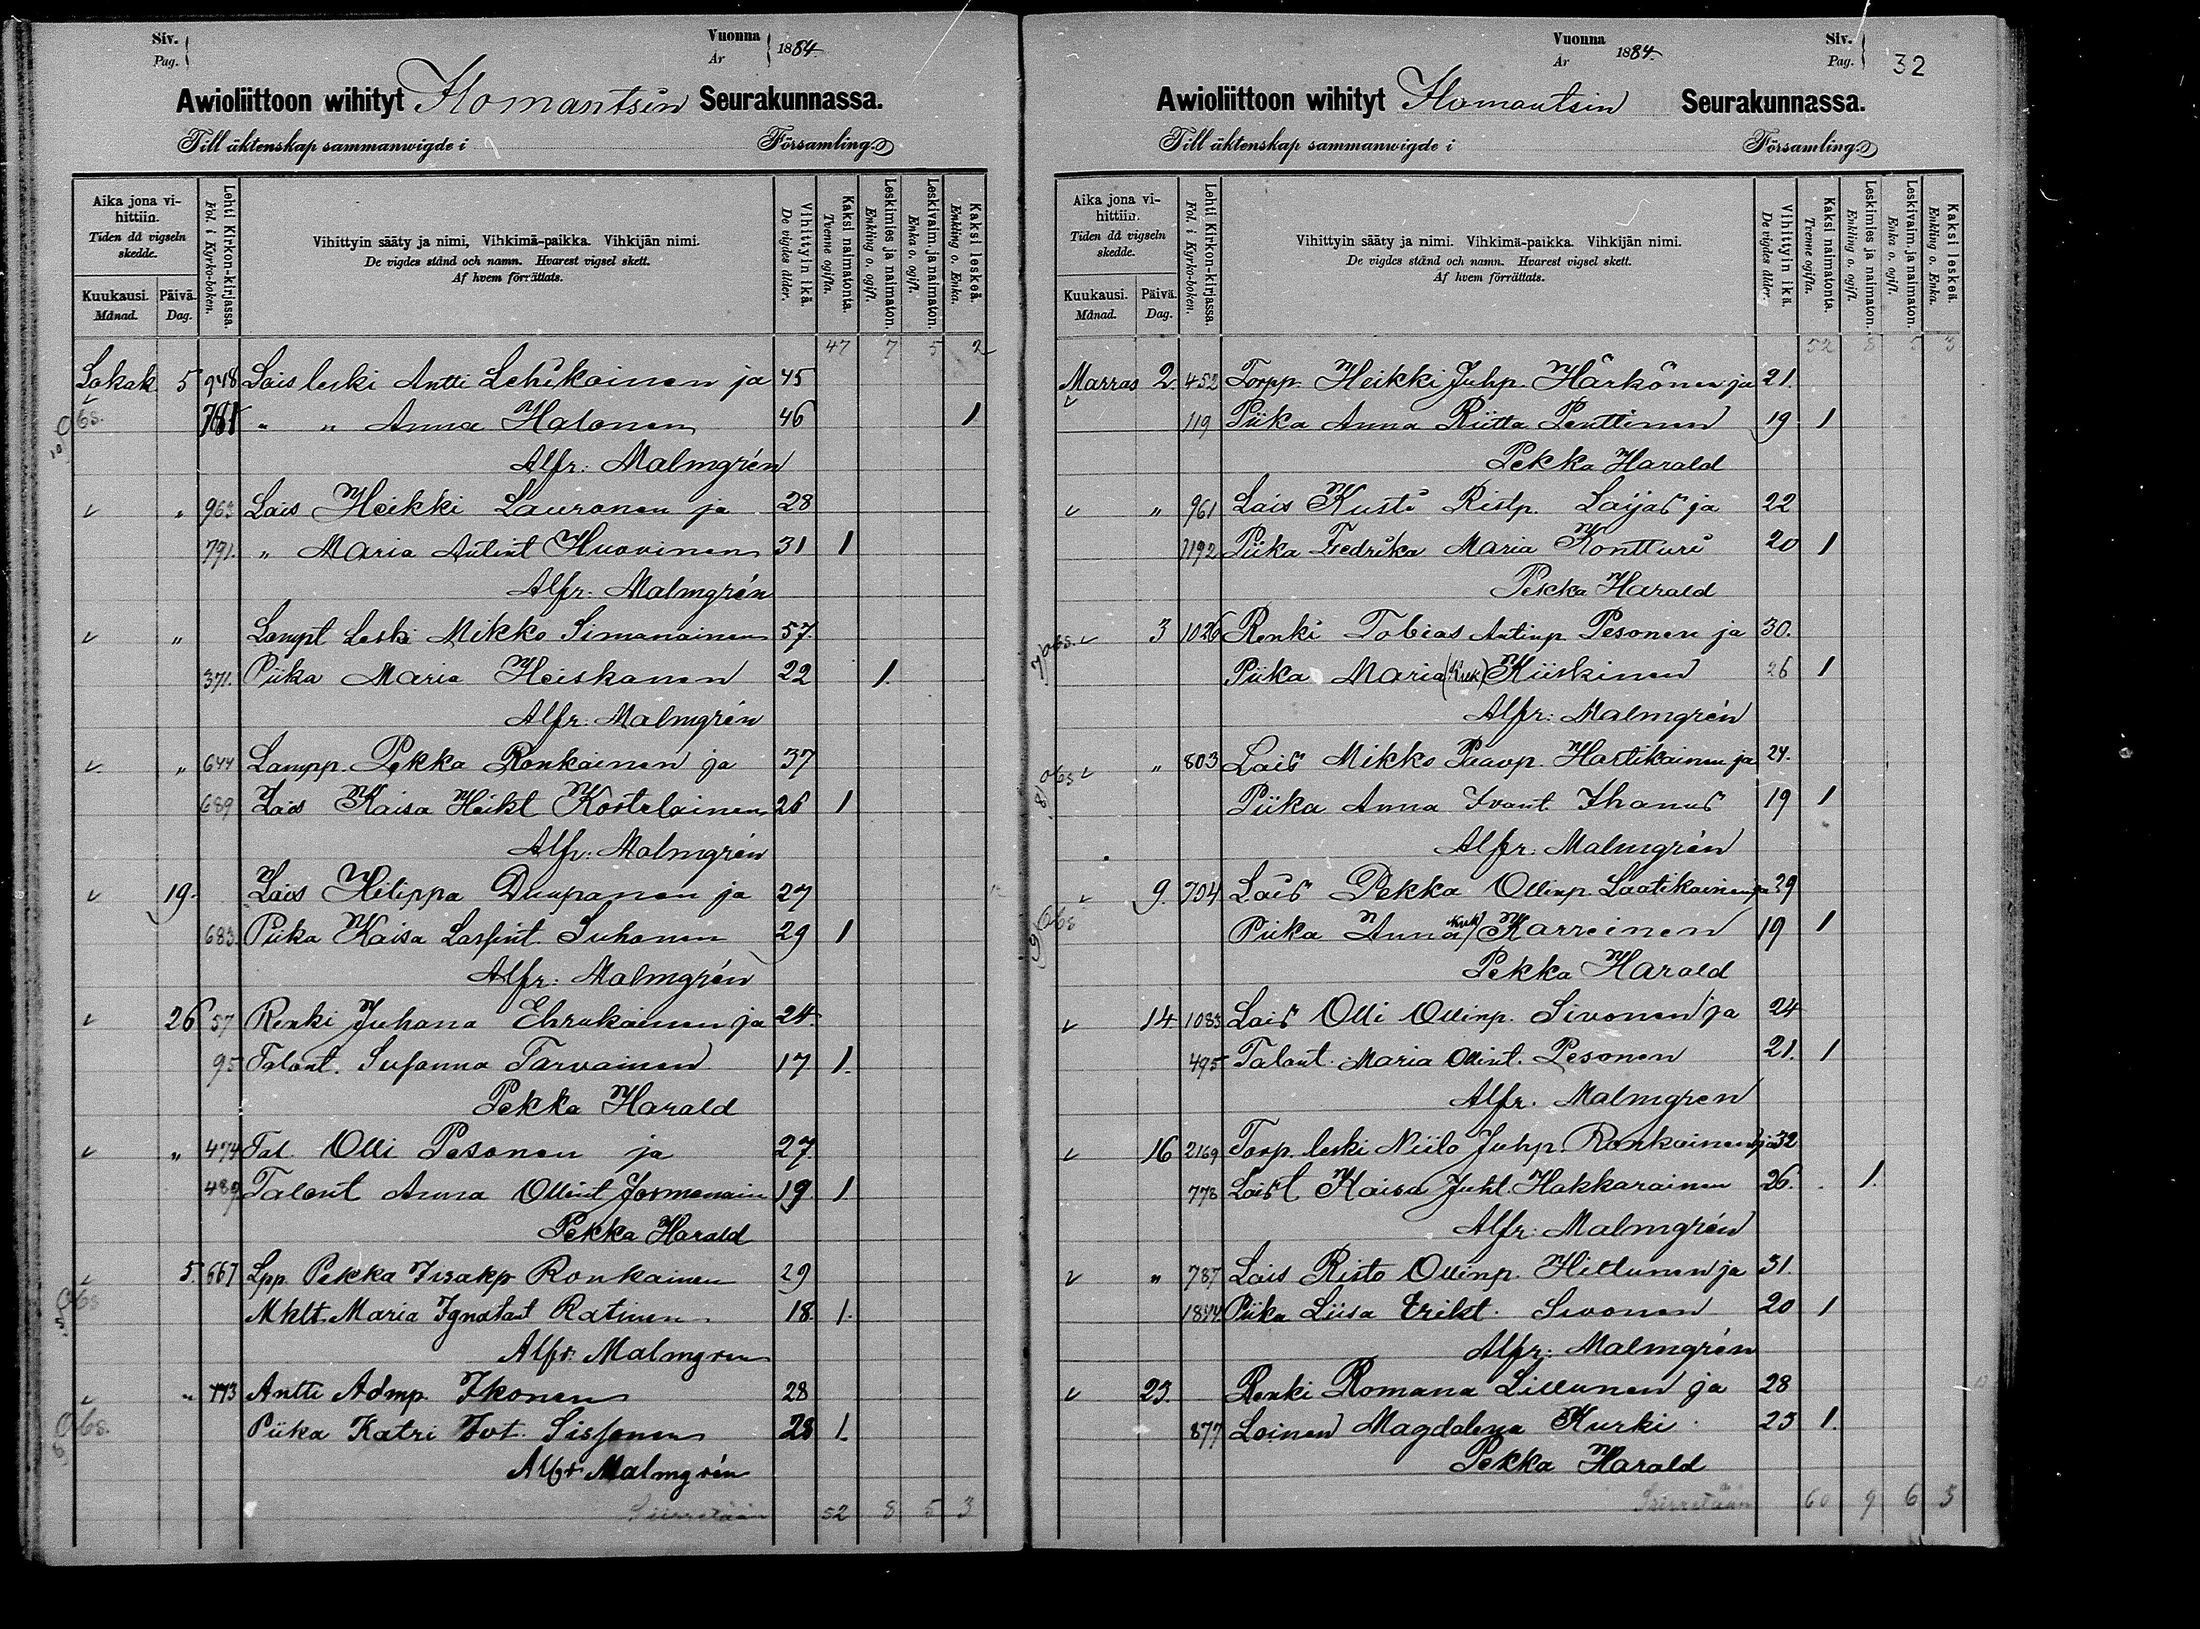 Siv. Pag. Vuonna År 1884.
Awioliittoon wihityt Ilomantsin Seurakunnassa.
Till äktenskap sammanwigde i Församling
Aika jona vihittiin. Tiden då vigseln skedde. Kuukausi. Månad. Päivä. Dag. Lehti Kirkon-kirjassa. Fol. i Kyrko-boken. Vihittyin sääty ja nimi, Vihkimä-paikka. Vihkijän nimi. De vigdes stånd och namn. Hvarest vigsel skett. Af hvem förrättats. Vihittyin ikä. De vigdes ålder. Kaksi naimatonta. Tvenne ogifta. Leskimies ja naimaton. Enkling o. ogift. Leskivaim. ja naimaton. Enka o. ogift. Kaksi leskeä. Enkling o. Enka.
47 7 5 2
Lokak. 5 948 Lois leski Antti Lehikoinen ja 45
Obs. 781 " " Anna Halonen 46 1
Alfr. Malmgrén
" 963 Lois Heikki Lauronen ja 28
791. " Maria Antint Huovinen 31 1
Alfr. Malmgrén
" Lampt leski Mikko Simanainen 57.
371. Piika Maria Heiskanen 22 1.
Alfr. Malmgrén
" 644 Lampp. Pekka Ronkainen ja 37
689 Lois Kaisa Heikt Kostelainen 26 1
Alfr. Malmgrén
19. Lois Hilippa Puupanen ja 27
683. Piika Kaisa Lassint. Suhonen 29 1
Alfr. Malmgrén
26 57 Renki Juhana Ehrukainen ja 24.
95 Talont. Susanna Tarvainen 17 1.
Pekka Harald
" 474 Tal. Olli Pesonen ja 27.
489 Talont Anna Ollint Jormanain 19 1
Pekka Harald
5. 667 Lpp. Pekka Isakp Ronkainen 29
Obs Mklt. Maria Ignatant Ratinen 18. 1.
Alfr. Malmgren
" 773 Antti Admp. Ikonen 28
Obs. Piika Katri Ivt. Sissonen 28 1
Alfr Malmgrén
Siirretään 52 8 5 3
Vuonna År 1884. Siv. Pag. 32
Awioliittoon wihityt Ilomantsin Seurakunnassa.
Till äktenskap sammanwigde i Församling
Aika jona vihittiin. Tiden då vigseln skedde. Kuukausi. Månad. Päivä. Dag. Lehti Kirkon-kirjassa. Fol. i Kyrko-boken. Vihittyin sääty ja nimi. Vihkimä-paikka. Vihkijän nimi. De vigdes stånd och namn. Hvarest vigsel skett. Af hvem förrättats. Vihittyin ikä. De vigdes ålder. Kaksi naimatonta. Tvenne ogifta. Leskimies ja naimaton. Enkling o. ogift. Leskivaim. ja naimaton. Enka o. ogift. Kaksi leskeä. Enkling o. Enka.
52 8 5 3
Marras 2. 452 Torpp. Heikki Juhp. Härkönen ja 21.
119 Piika Anna Riitta Penttinen 19 1
Pekka Harald
" 961 Lois Kusti Ristp. Laijas ja 22
1192 Piika Fredrika Maria Kontturi 20 1
Pekka Harald
7 obs. 3 1026 Renki Tobias Antinp. Pesonen ja 30.
Piika Maria (Krek) Kiiskinen 26 1
Alfr. Malmgrén
8 obs " 803 Lois Mikko Paavp. Hartikainen ja 24.
Piika Anna Ivant. Ihanus 19 1
Alfr. Malmgrén
9 Obs 9. 704 Lois Pekka Ollinp. Laatikainen ja 29
Piika Anna (Krek) Karreinen 19 1
Pekka Harald
14 1083 Lois Olli Ollinp. Sivonen ja 24
495 Talont. Maria Ollint. Pesonen 21. 1
Alfr. Malmgren
16 2169 Torp. leski Niilo Juhp. Ronkainen ja 32
778 Loist Kaisa Juht. Hakkarainen 26. 1.
Alfr. Malmgrén
" 787 Lois Risto Ollinp. Hiltunen ja 31.
1844 Piika Liisa Erikt. Sivonen 20 1
Alfr. Malmgrén
23. Renki Romana Lillunen ja 28
877 Loinen Magdalena Kurki 23 1.
Pekka Harald
Siirretään 60 9 6 3